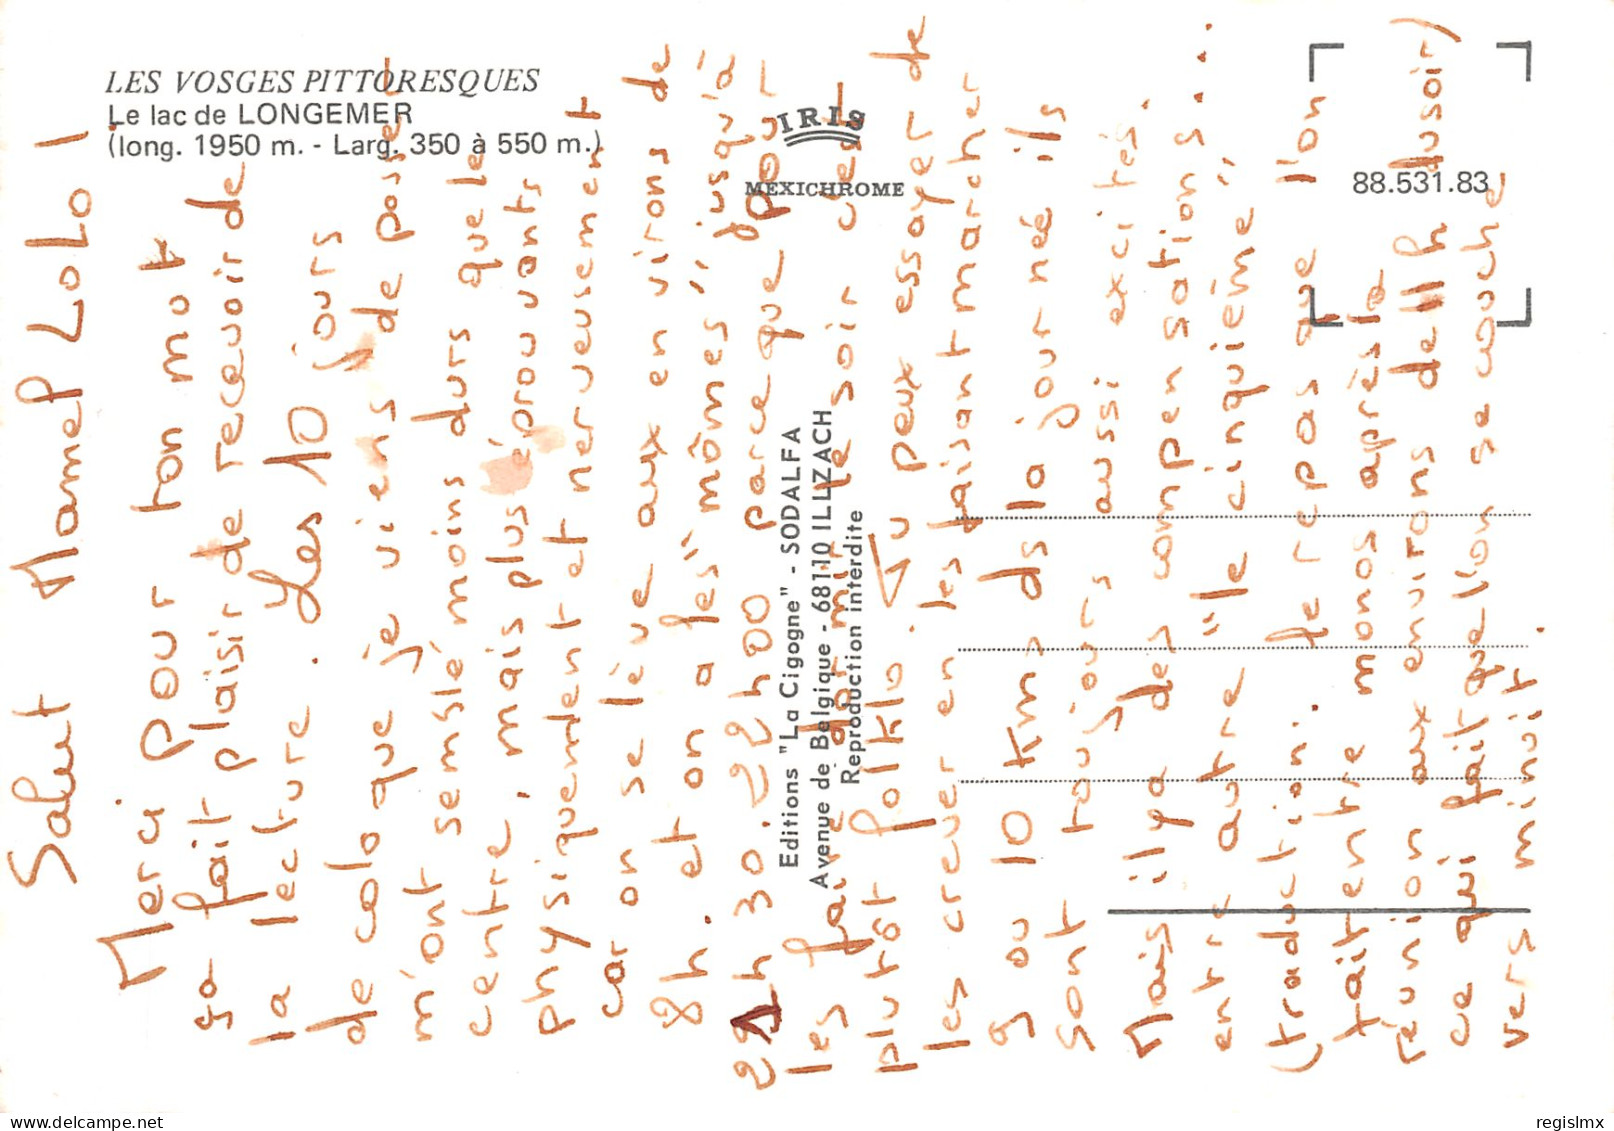 LES VOSGES PITTORESQUES
Le lac de LONGEMER
(long. 1950 m. - Larg. 350 à 550 m.)
IRIS
MEXICHROME
88.531.83
Editions "La Cigogne" - SODALFA
Avenue de Belgique - 68110 ILLZACH
Reproduction interdite
Salut Mamef LoLo !
Merci pour ton mot
ça fait plaisir de recevoir de
la lecture. Les 10 jours
de colo que je viens de passer
m'ont semblé moins durs que le
centre, mais plus éprouvants
physiquement et nerveusement
car on se lève aux environs de
8h. et on a les "mômes" jusqu'à
22h30. 22h00 parce que pour
les faire dormir le soir c'est
plutôt folklo. Tu peux essayer de
les crever en les faisant marcher
9 ou 10 kms ds la journeé ils
sont toujours aussi excités.
Mais il y a des compensations...
entre autre "le cinquième"
(traduction. le repas que l'on
fait entre monos après la
réunion aux environs de 11h du soir)
ce qui fait que l'on se couche
vers minuit.
delcampe.net
regislmx